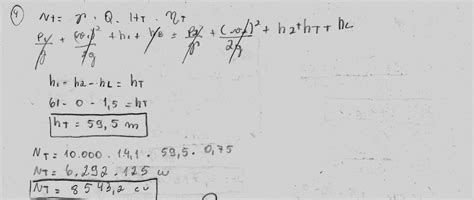 4
Nt = γ . Q . Ht . ηT
P1/γ + (v1)²/2g + h1 + hB = P2/γ + (v2)²/2g + h2 + hT + hL
h1 - h2 - hL = hT
61 - 0 - 1,5 = hT
hT = 59,5 m
NT = 10.000 . 14,1 . 59,5 . 0,75
NT = 6.292.125 w
NT = 8543,2 cv